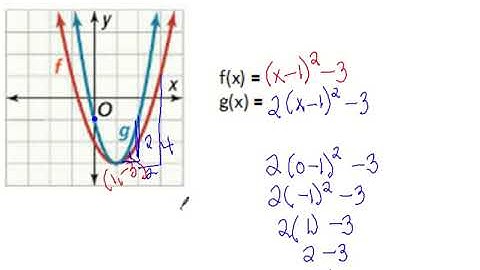 y
f
x
O
g
2
4
2
(1,-3)
f(x) = (x-1)² -3
g(x) = 2(x-1)² -3
2(0-1)² -3
2(-1)² -3
2(1) -3
2 -3